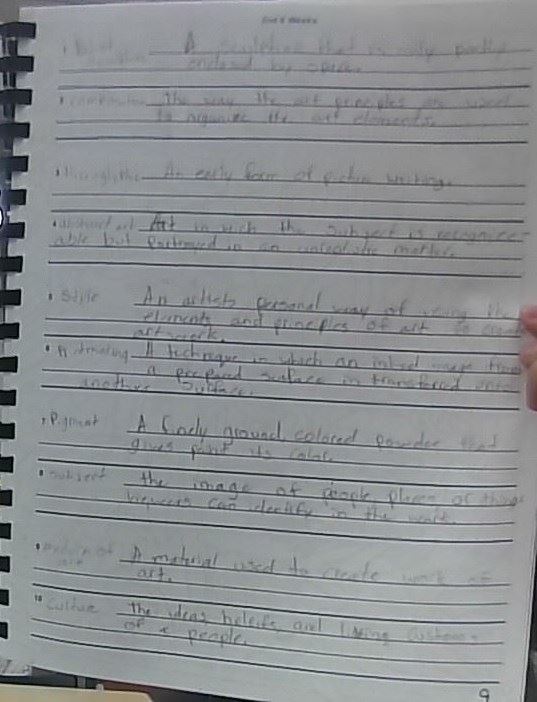 A sculpture that is only partly
enclosed by space.
The way the art principles are used
to organize the art elements.
Hieroglyphic An early form of picture writing.
Abstract art Art in wich the subject is recognize-
able but portrayed in an unrealistic
Style An artists personal way of using the
elements and principles of art to create
art work.
Printmaking A technique in which an inked image from
a prepared surface in transfered onto
another surface.
Pigment A finely ground, colored powder that
gives paint its color.
Subject the image of people places or things
viewers can identify in the work.
Medium of A material used to create work of
art art.
10 Culture the ideas, beliefs, and living customs
of a people.
9